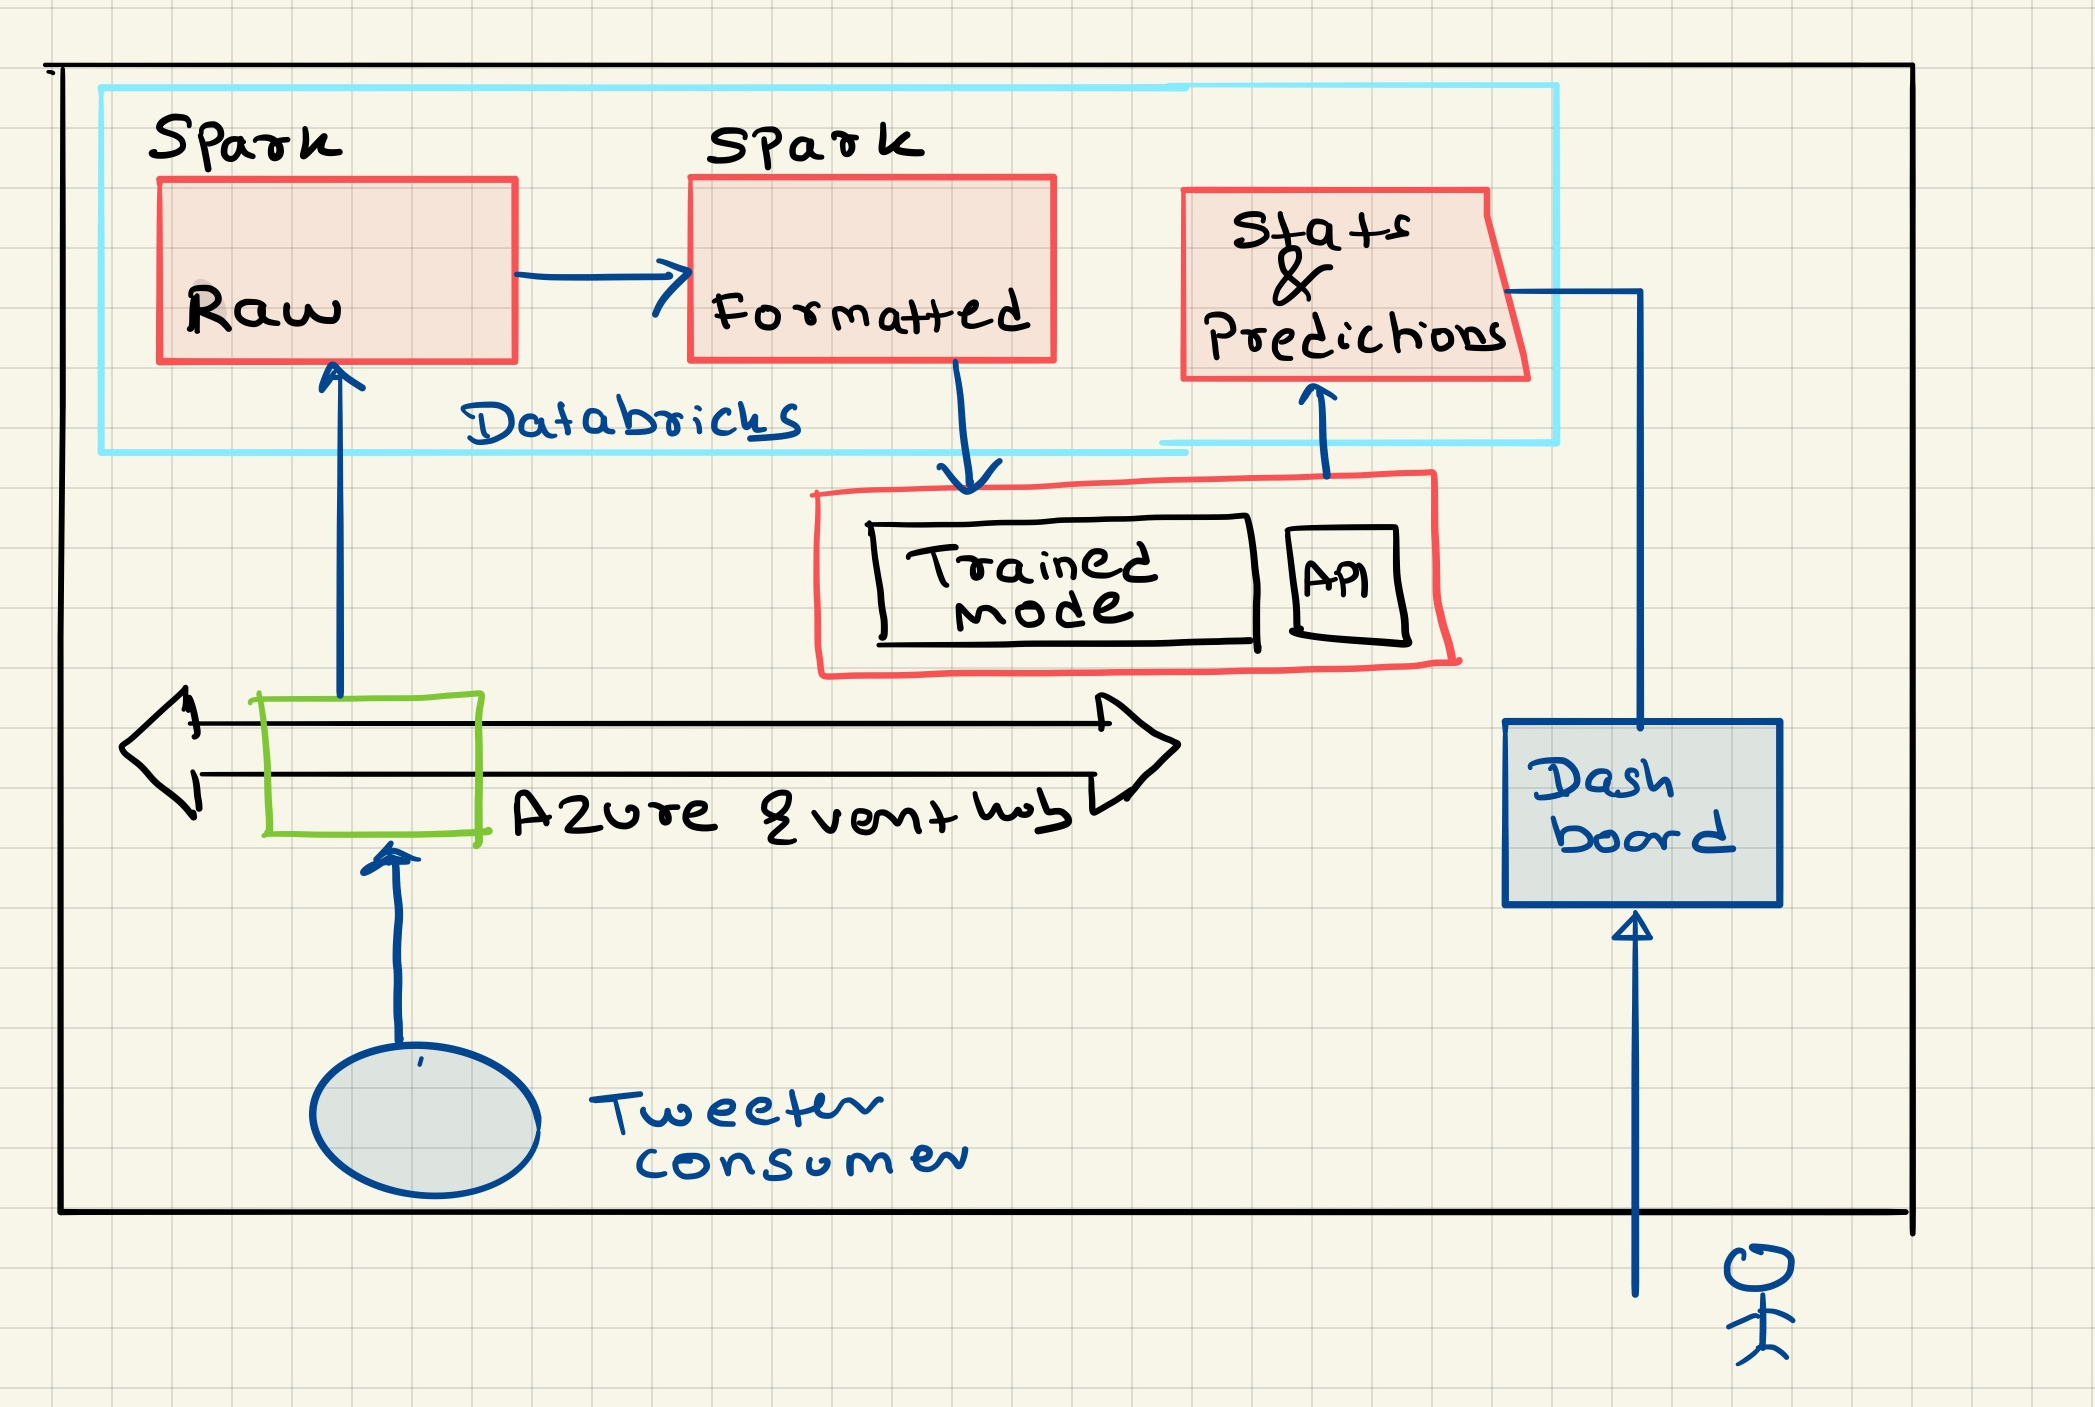 Spark
Spark
Raw
Formatted
Stats
&
Predictions
Databricks
Trained
mode
API
Azure Eventhub
Dash
board
Tweeter
consumer